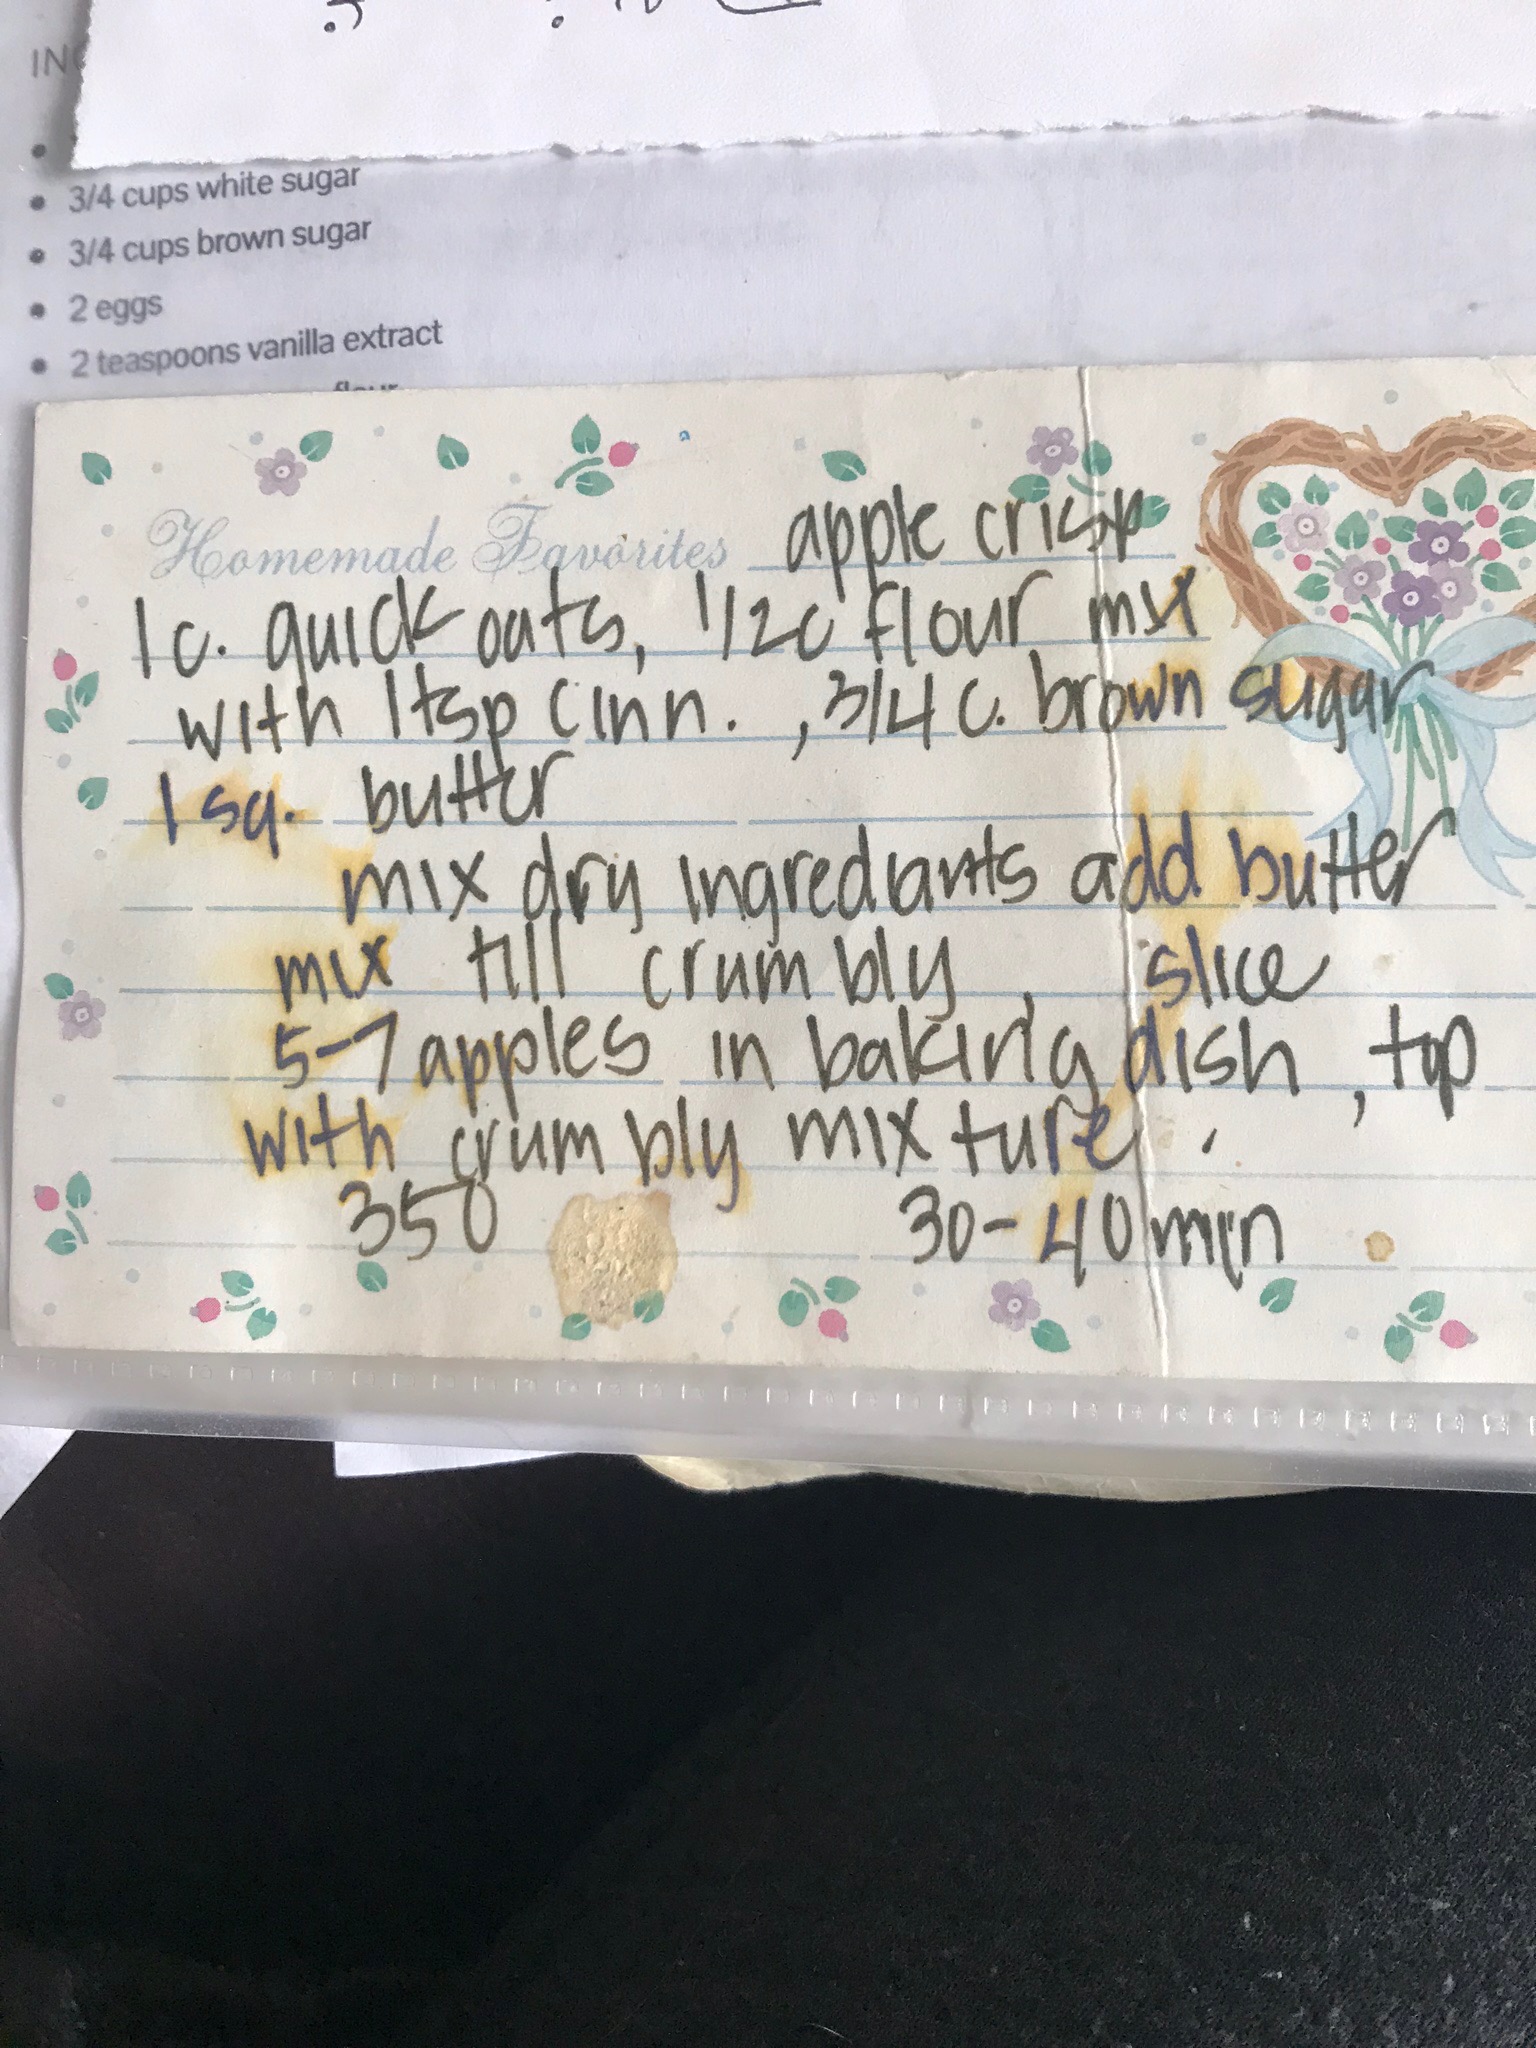 3/4 cups white sugar
3/4 cups brown sugar
2 eggs
2 teaspoons vanilla extract
flour
Homemade Favorites apple crisp
1 c. quick oats, 1/2 c flour mix
with 1 tsp cinn. , 3/4 c. brown sugar
1 sq. butter
mix dry ingrediants add butter
mix till crumbly , slice
5-7 apples in baking dish , top
with crumbly mixture .
350 30-40 min